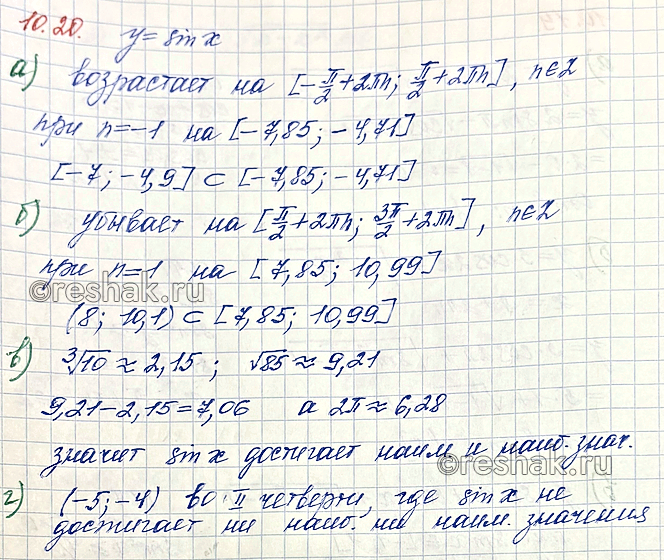 10.20. y = sin x
а) возрастает на [-π/2+2πn; π/2+2πn], n∈Z
при n=-1 на [-7,85; -4,71]
[-7; -4,9] ⊂ [-7,85; -4,71]
б) убывает на [π/2+2πn; 3π/2+2πn], n∈Z
при n=1 на [7,85; 10,99]
©reshak.ru
(8; 10,1) ⊂ [7,85; 10,99]
в) ∛10 ≈ 2,15; √85 ≈ 9,21
9,21-2,15=7,06 а 2π≈6,28
значит sin x достигает наим и наиб. знач.
©reshak.ru
г) (-5; -4) во II четверти, где sin x не
достигает ни наиб. ни наим. значения